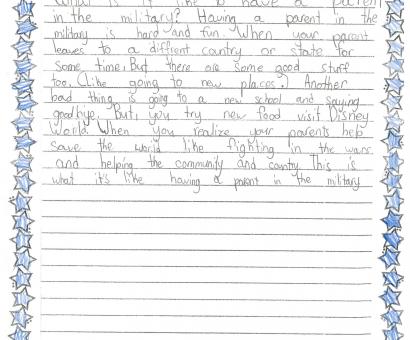 What is it like to have a parent
in the military? Having a parent in the
military is hard and fun. When your parent
leaves to a diffrent country or state for
some time. But there are some good stuff
too. (Like going to new places.) Another
bad thing is going to a new school and saying
goodbye. But, you try new food visit Disney
World. When you realize your parents help
save the world like fighting in the wars
and helping the community and country. This is
what it's like having a parent in the military